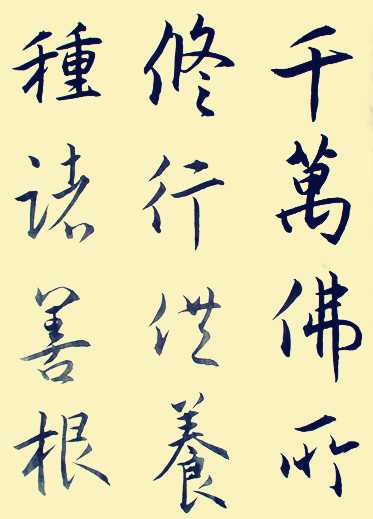 千萬佛所
修行供養
種諸善根